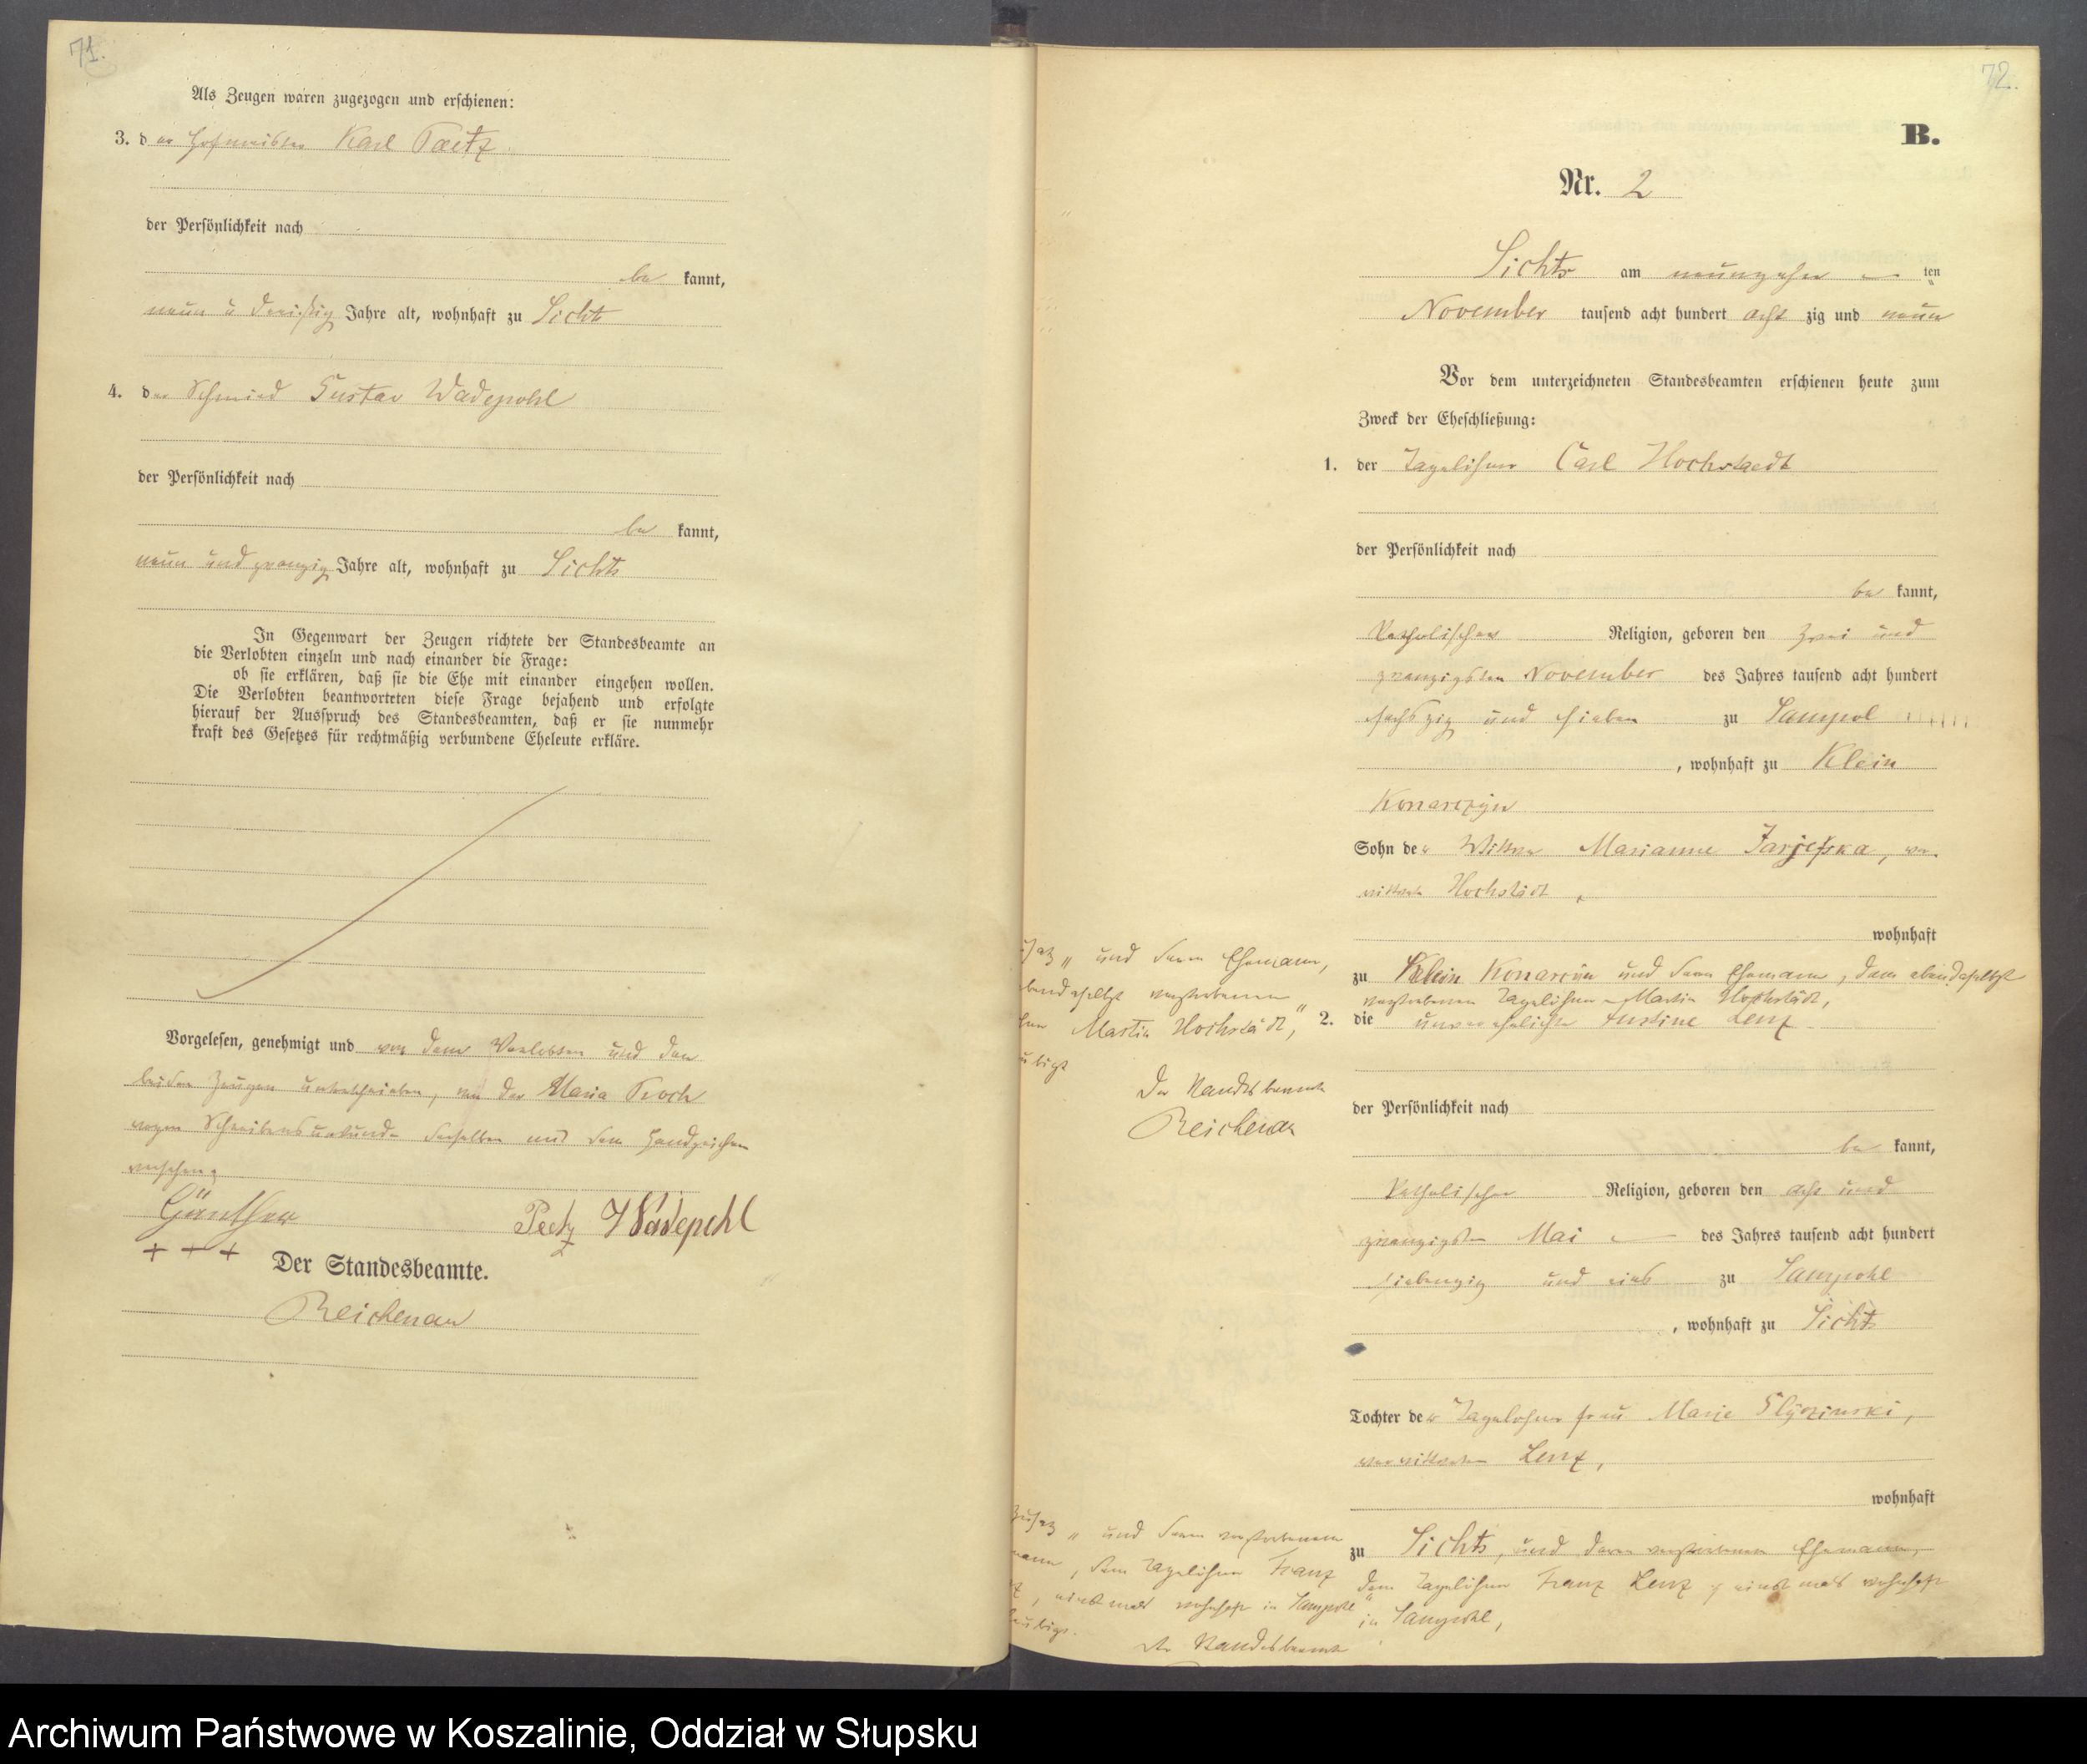 71.
Als Zeugen waren zugezogen und erschienen:
3. der Hofmeister Karl Paetz
der Persönlichkeit nach
be kannt,
neun u dreißig Jahre alt, wohnhaft zu Sichts
4. der Schmied Gustav Wadepohl
der Persönlichkeit nach
be kannt,
neun und zwanzig Jahre alt, wohnhaft zu Sichts
In Gegenwart der Zeugen richtete der Standesbeamte an
die Verlobten einzeln und nach einander die Frage:
ob sie erklären, daß sie die Ehe mit einander eingehen wollen.
Die Verlobten beantworteten diese Frage bejahend und erfolgte
hierauf der Ausspruch des Standesbeamten, daß er sie nunmehr
kraft des Gesetzes für rechtmäßig verbundene Eheleute erkläre.
Vorgelesen, genehmigt und von dem Verlobten und den
beiden Zeugen unterschrieben, von der Maria
wegen Schreibensunkunde derselben mit dem Handzeichen
versehen.
Günther Paetz GWadepohl
+ + +
Der Standesbeamte.
Reichenau
72.
B.
Nr. 2
Sichts am neunzehn ten
November tausend acht hundert acht zig und neun
Vor dem unterzeichneten Standesbeamten erschienen heute zum
Zweck der Eheschließung:
1. der Tagelöhner Carl Hochstaedt
der Persönlichkeit nach
be kannt,
katholischer Religion, geboren den zwei und
zwanzigsten November des Jahres tausend acht hundert
sechszig und sieben zu Sampol
, wohnhaft zu Klein
Konarczyn
Sohn der Wittwe Marianne, ver-
wittwete Hochstädt,
wohnhaft
zu Klein Konarczin und deren Ehemann, dem ebendaselbst
verstorbenen Tagelöhner Martin Hochstädt,
2. die unverehelichte Justine Lenz
der Persönlichkeit nach
be kannt,
katholischer Religion, geboren den acht und
zwanzigsten Mai des Jahres tausend acht hundert
siebenzig und eins zu Sampohl
, wohnhaft zu Sichts
Tochter der Tagelöhner frau Marie Glyszinski,
verwittwete Lenz,
wohnhaft
zu Sichts, und deren verstorbenen Ehemann,
dem Tagelöhner Franz Lenz, einstmals wohnhaft
in Sampohl,
usatz „ und deren Ehemann,
bendaselbst verstorbenen
Martin Hochstädt,"
ubigt
Der Standesbeamte
Reichenau
Zusatz „ und deren verstorbenen
mann, dem Tagelöhner Franz
, einstmals wohnhaft in Sampohl"
aubigt.
Der Standesbeamte
Archiwum Państwowe w Koszalinie, Oddział w Słupsku